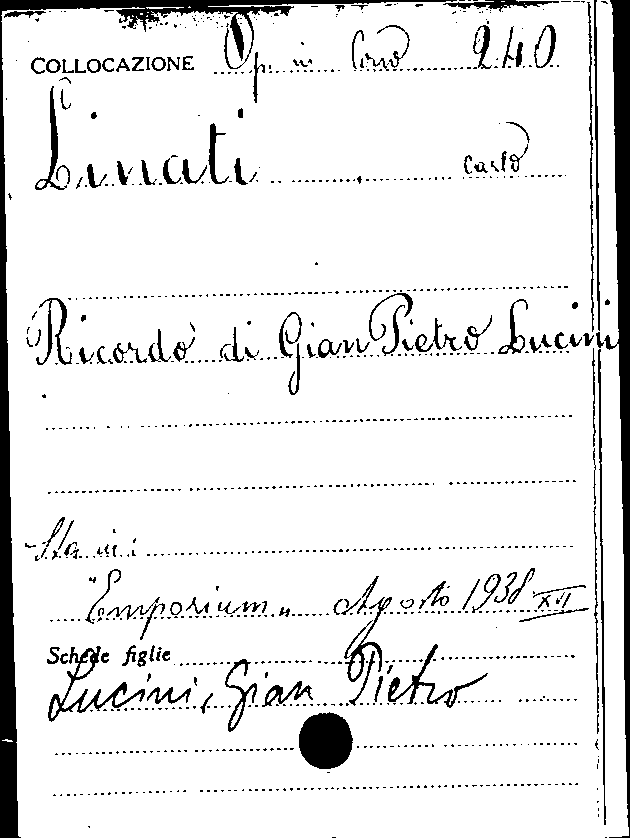 COLLOCAZIONE Op. in Cons 240
Linati, Carlo
Ricordo di Gian Pietro Lucini
Sta in:
"Emporium" Agosto 1938 XVI
Schede figlie
Lucini, Gian Pietro